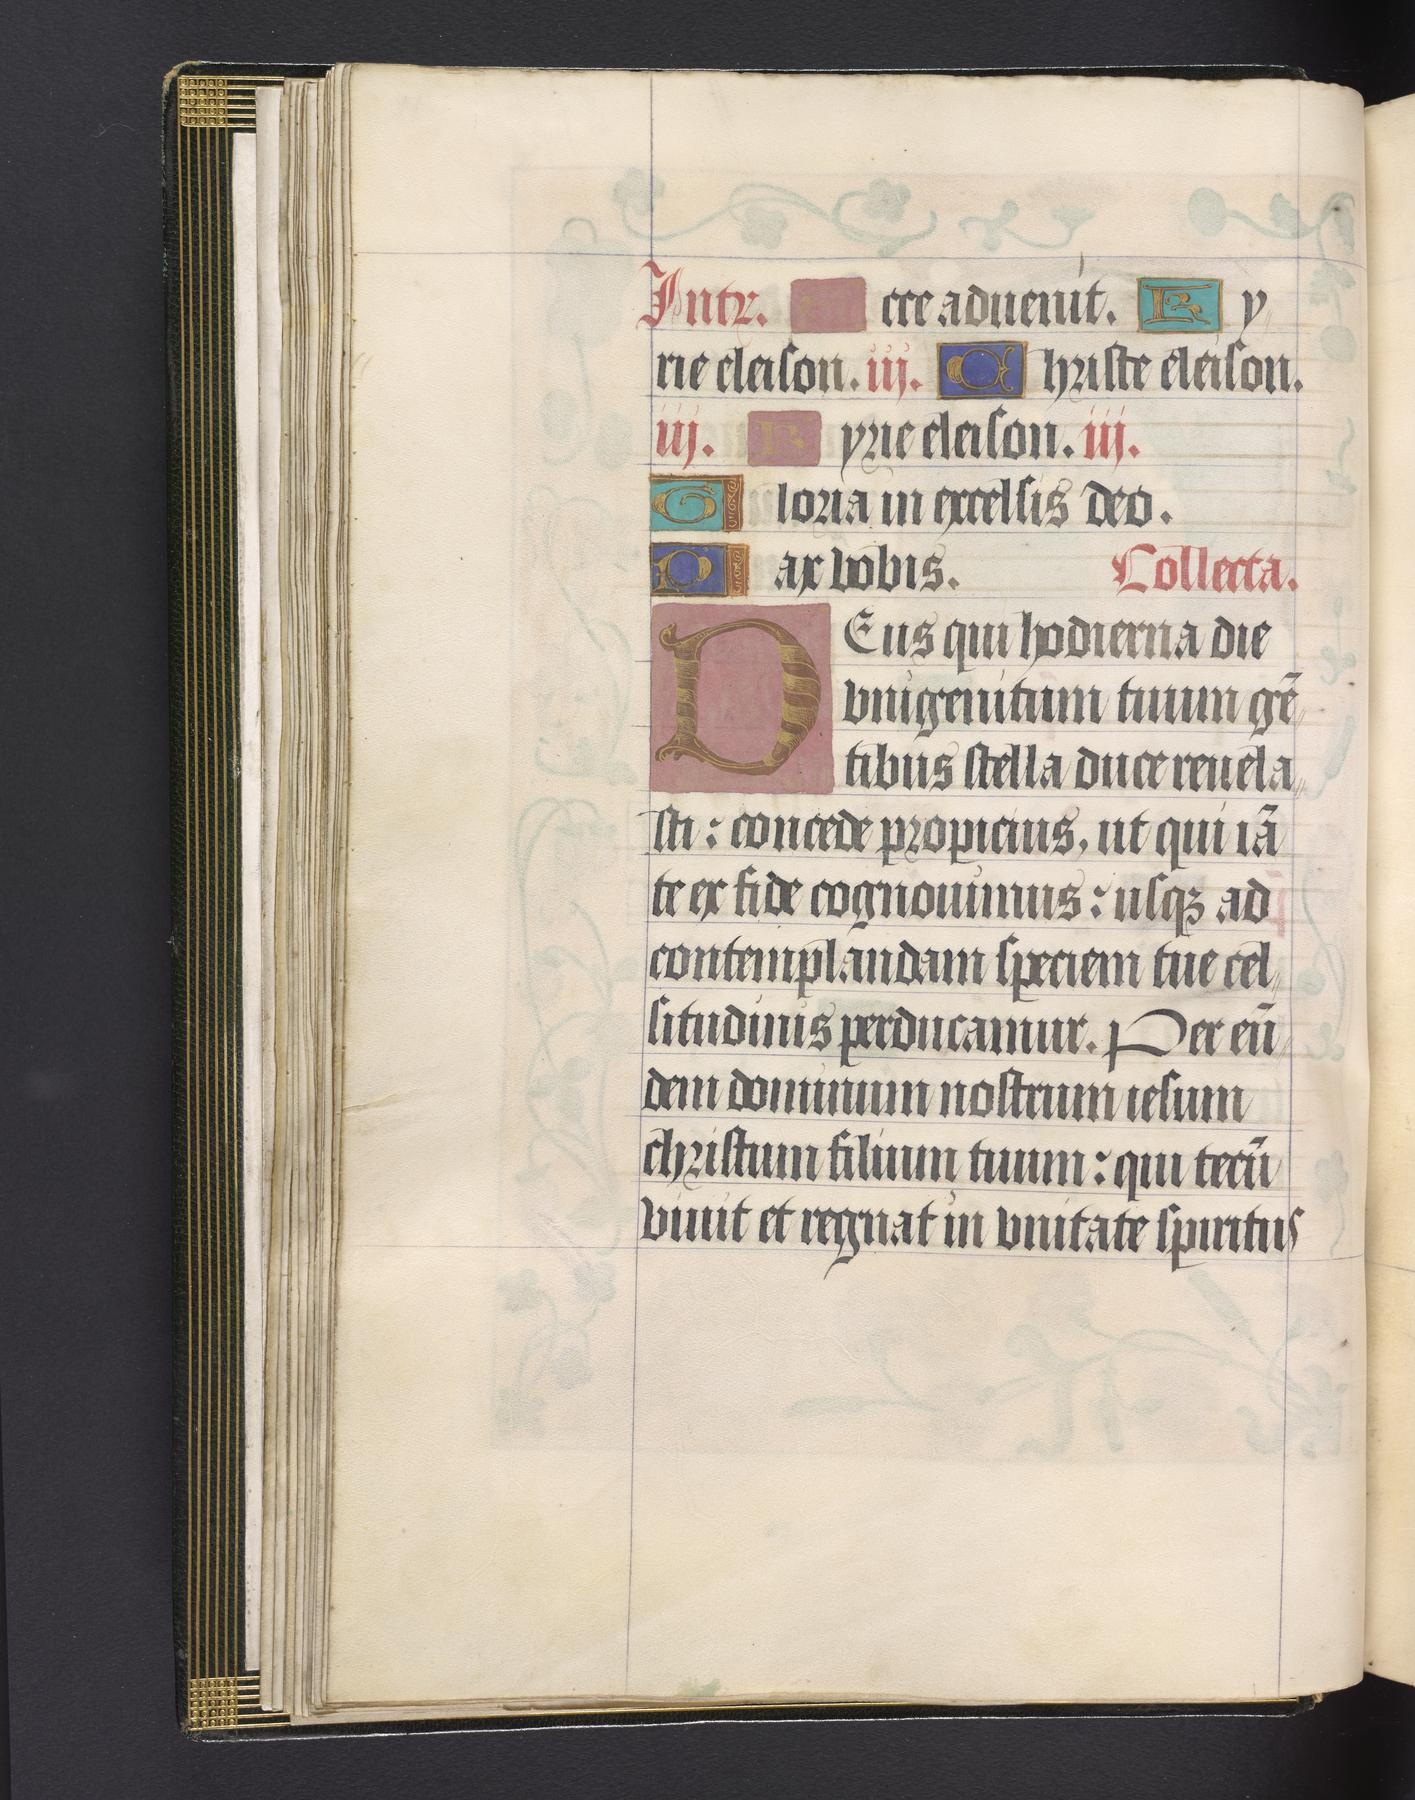 Intr. Ecce aduenit. Ky
rie eleison. iij. Christe eleison.
iij. Kyrie eleison. iij.
Gloria in excelsis deo.
Pax vobis. Collecta.
DEus qui hodierna die
vnigenitum tuum gē
tibus stella duce reuela
sti: concede propicius, ut qui iā
te ex fide cognouimus: usqꝫ ad
contemplandam speciem tue cel
situdinis perducamur. Per eū
dem dominum nostrum iesum
christum filium tuum: qui tecū
viuit et regnat in vnitate spiritus